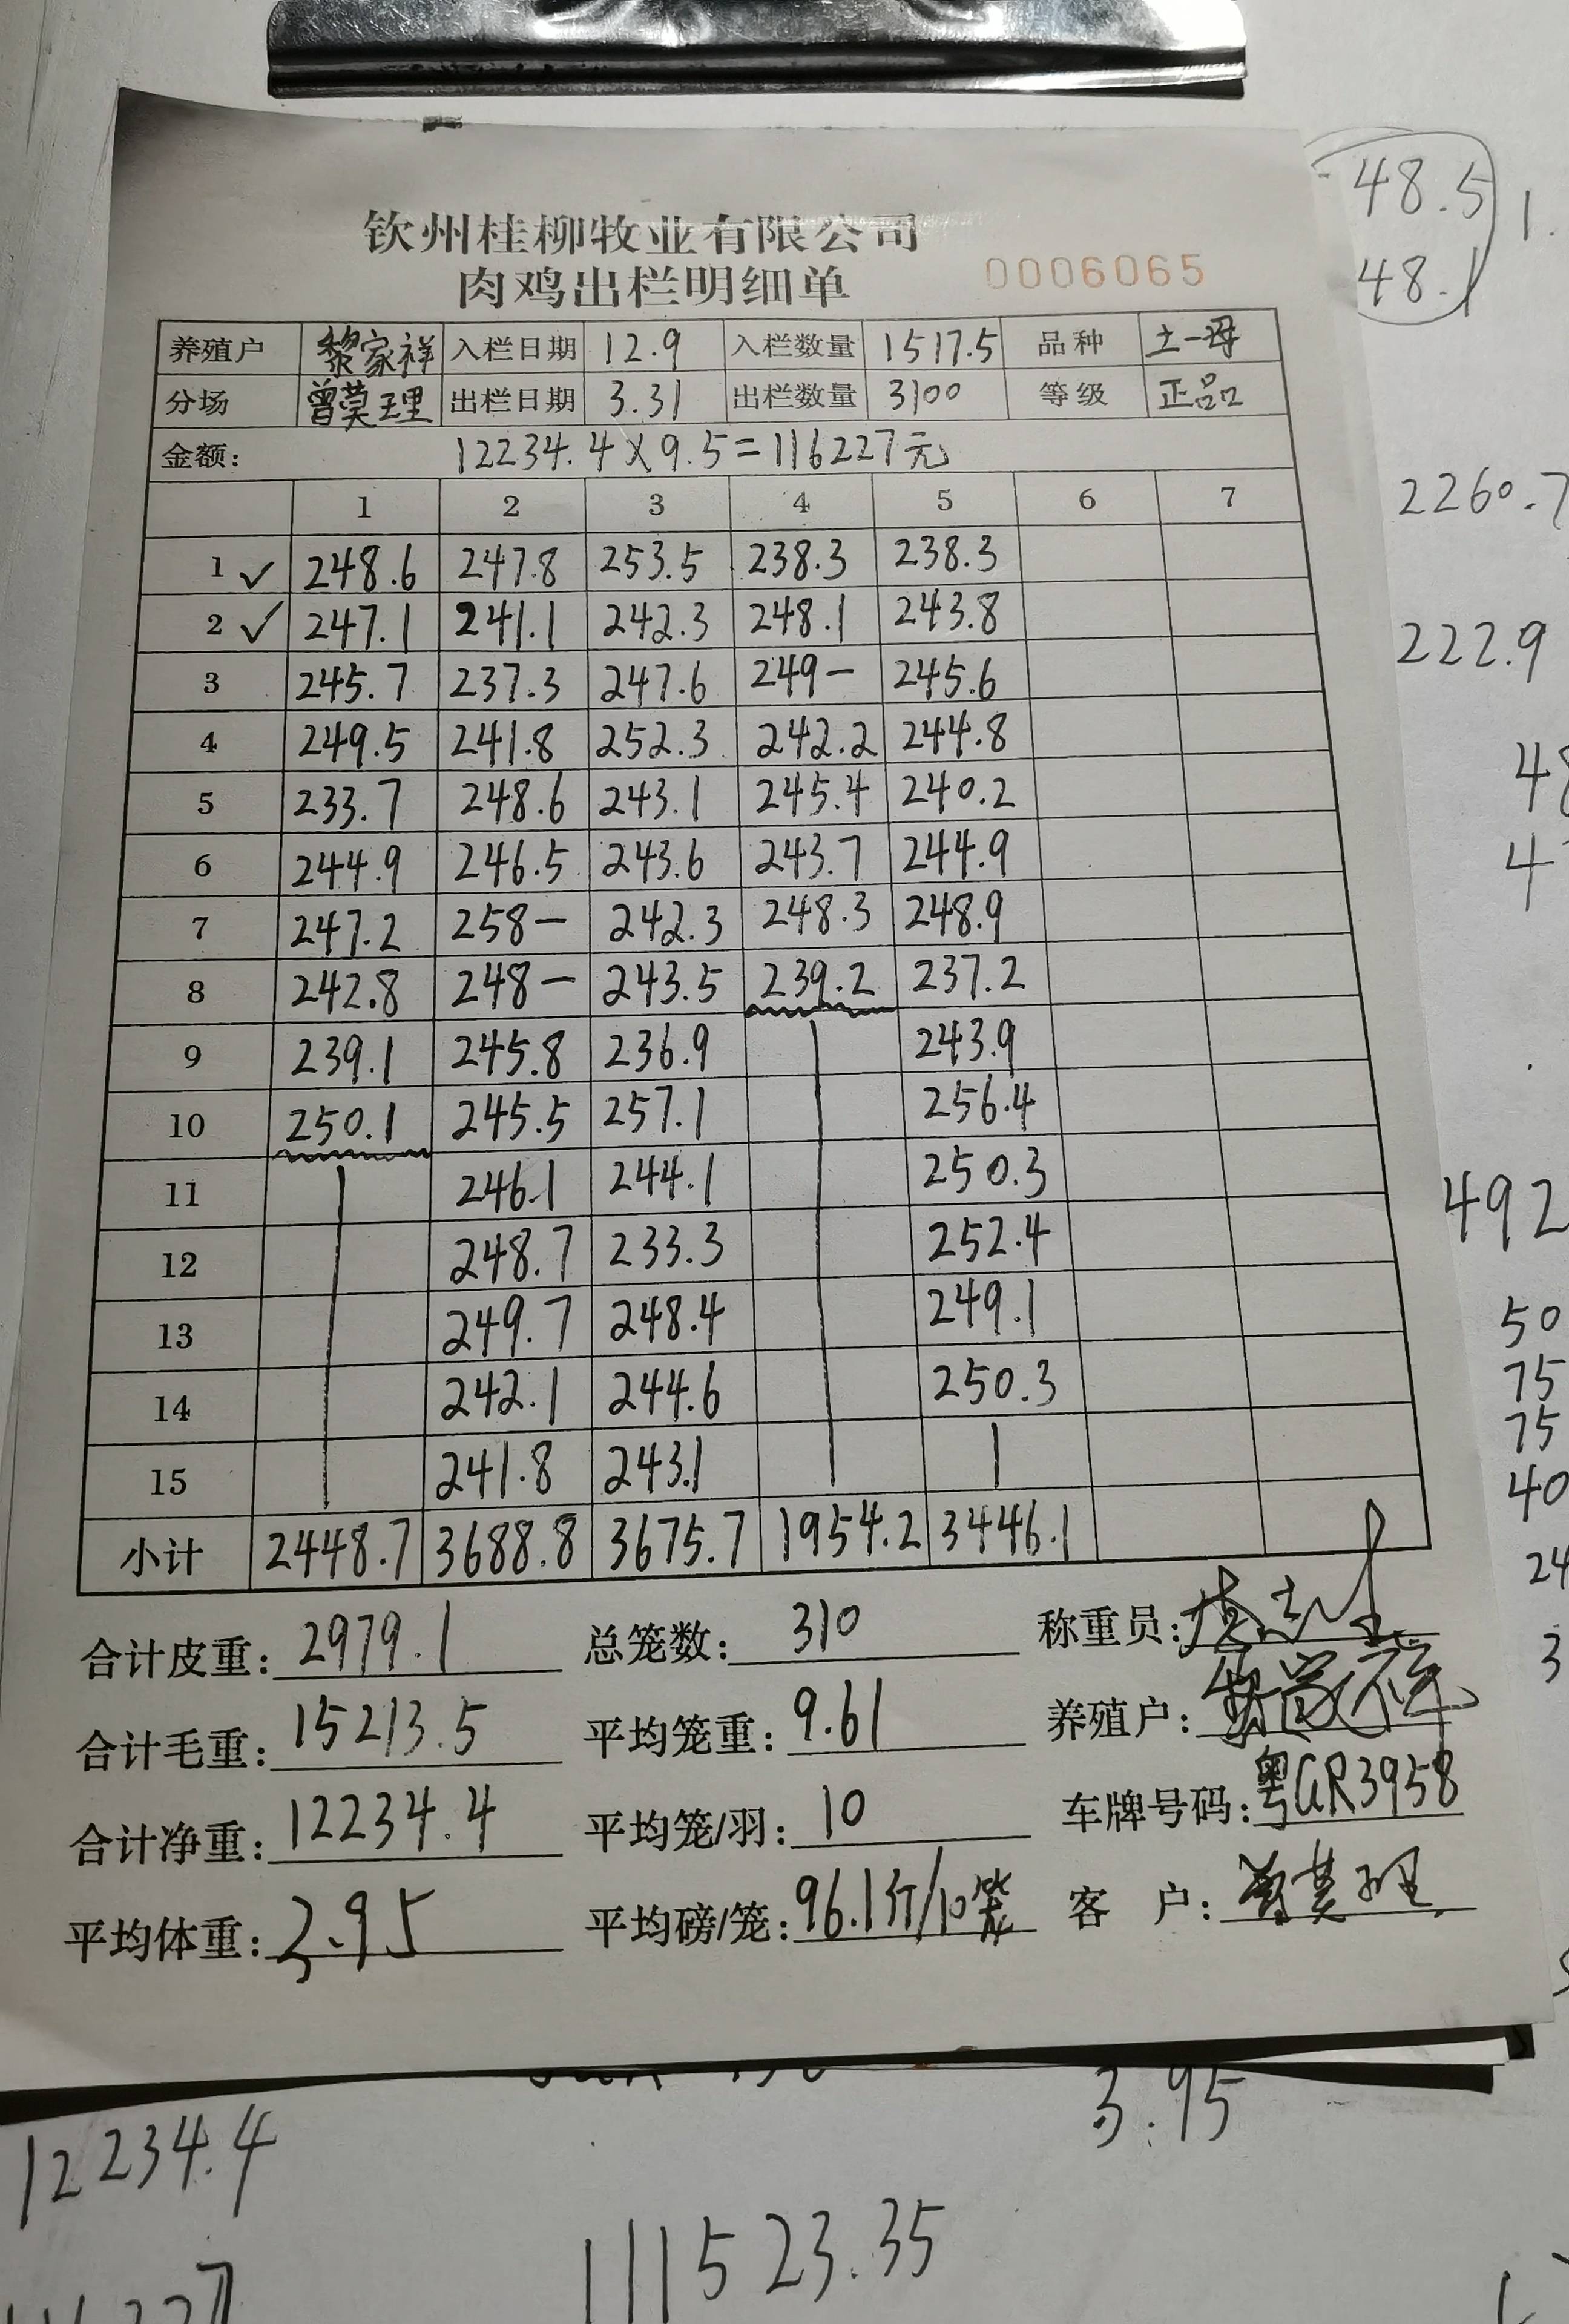 钦州桂柳牧业有限公司
肉鸡出栏明细单 0006065
养殖户 黎家祥 入栏日期 12.9 入栏数量 1517.5 品种 土一母
分场 曾莫理 出栏日期 3.31 出栏数量 3100 等级 正品
金额: 12234.4×9.5=116227元
1 2 3 4 5 6 7
1 ✓ 248.6 247.8 253.5 238.3 238.3
2 ✓ 247.1 241.1 242.3 248.1 243.8
3 245.7 237.3 247.6 249- 245.6
4 249.5 241.8 252.3 242.2 244.8
5 233.7 248.6 243.1 245.4 240.2
6 244.9 246.5 243.6 243.7 244.9
7 247.2 258- 242.3 248.3 248.9
8 242.8 248- 243.5 239.2 237.2
9 239.1 245.8 236.9 243.9
10 250.1 245.5 257.1 256.4
11 246.1 244.1 250.3
12 248.7 233.3 252.4
13 249.7 248.4 249.1
14 242.1 244.6 250.3
15 241.8 243.1
小计 2448.7 3688.8 3675.7 1954.2 3446.1
合计皮重: 2979.1 总笼数: 310 称重员:
合计毛重: 15213.5 平均笼重: 9.61 养殖户: 黎家祥
合计净重: 12234.4 平均笼/羽: 10 车牌号码: 粤GR3958
平均体重: 3.95 平均磅/笼: 96.1斤/10笼 客户: 曾莫理
48.5
48.1
1.
2260.7
222.9
48
4
492
50
75
75
40
24
3
3.95
12234.4
111523.35